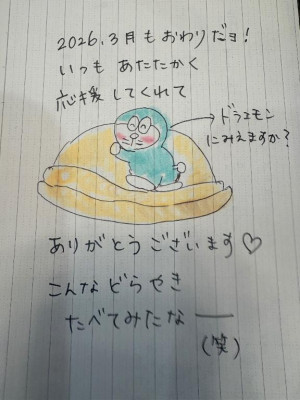 2026.3月もおわりだョ!
いつも あたたかく
応援してくれて
ドラエモン
にみえますか?
ありがとうございます♡
こんなどらやき
たべてみたなー
(笑)